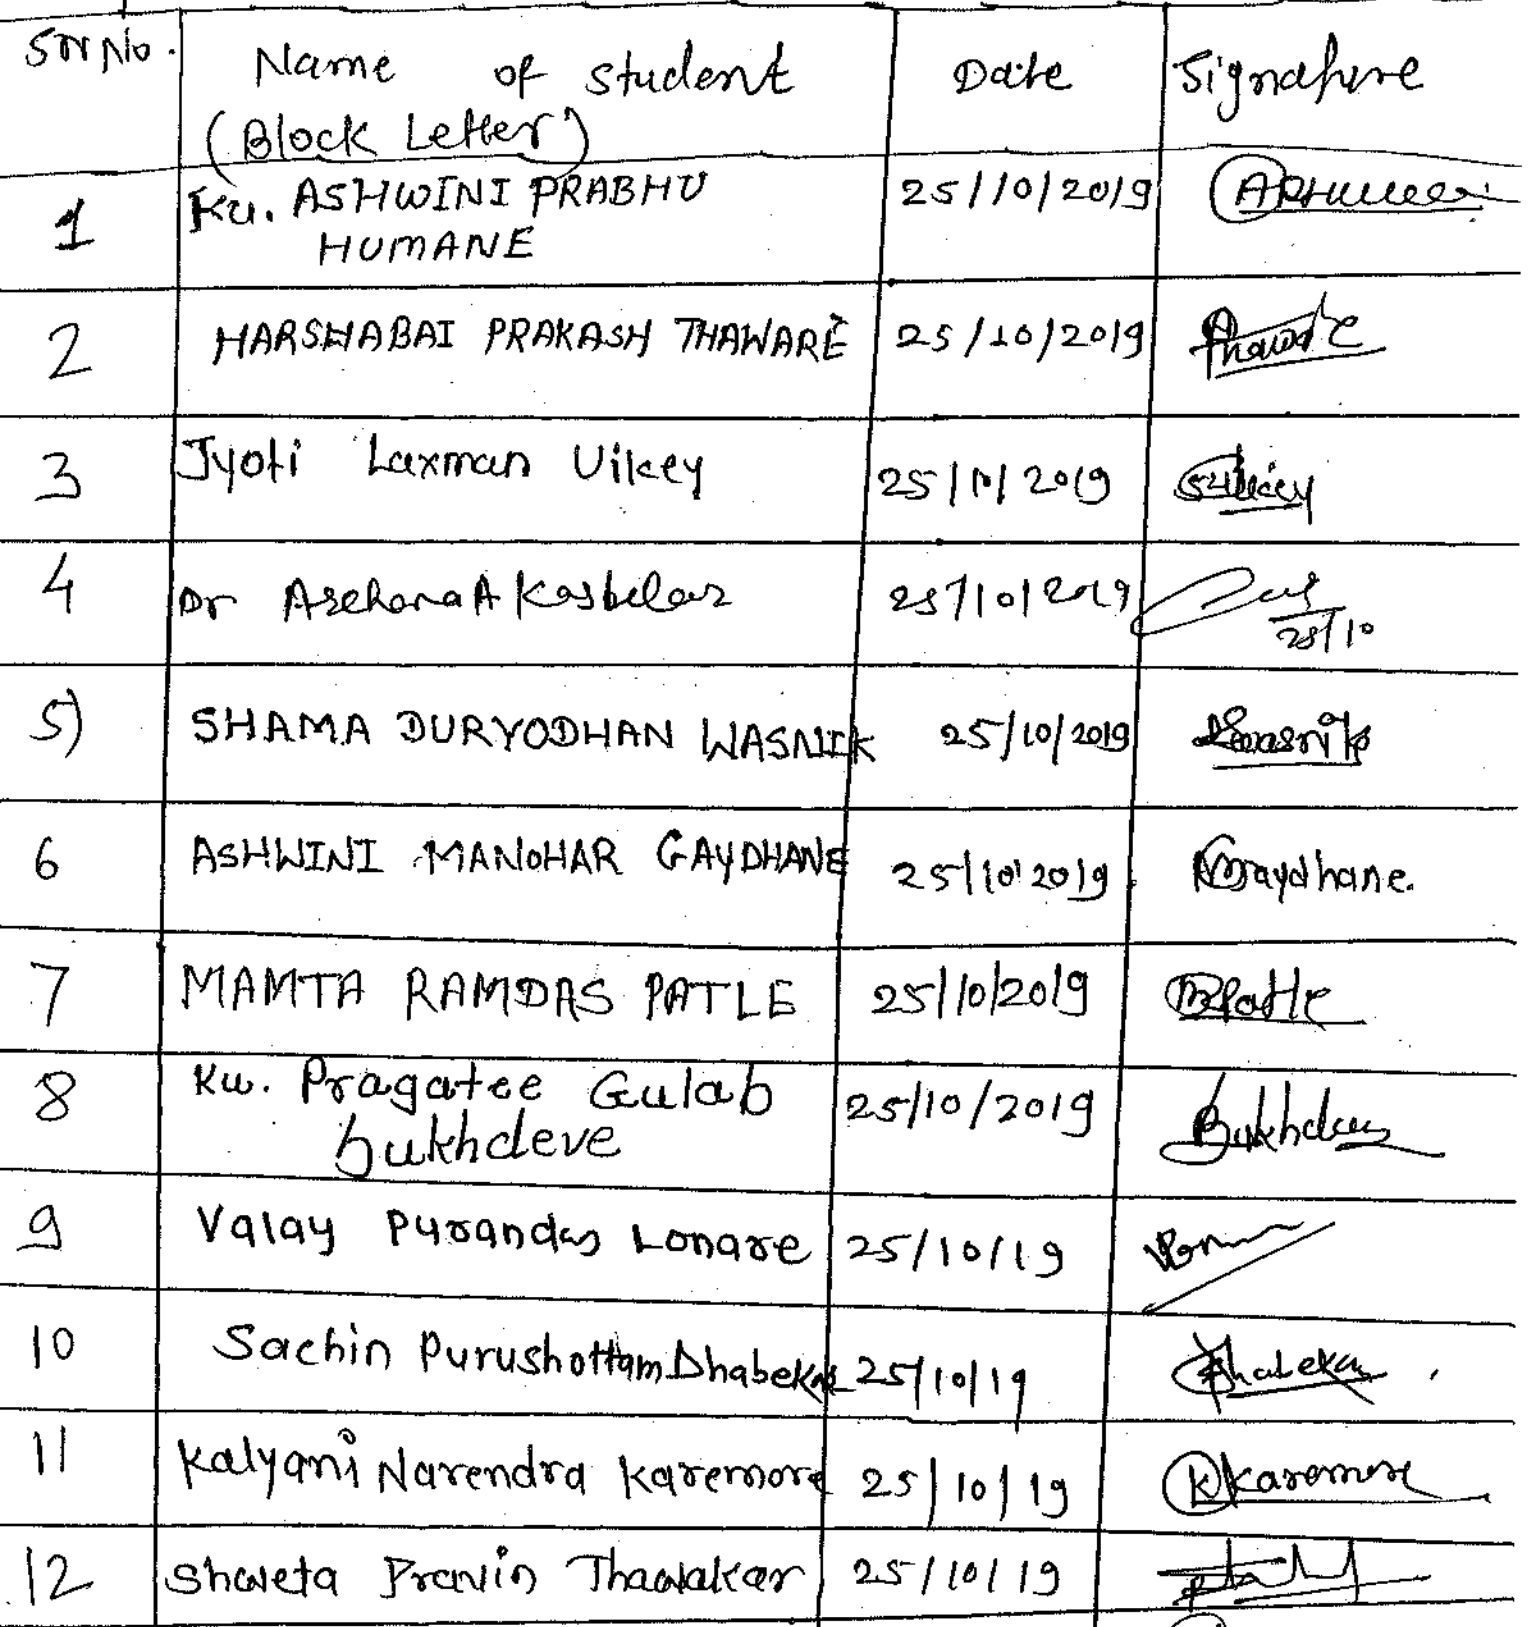 Sr No. Name of student Date Signature
(Block Letter)
1 Ku. ASHWINI PRABHU 25/10/2019
HUMANE
2 HARSHABAI PRAKASH THAWARE 25/10/2019 Thaware
3 Jyoti Laxman Uikey 25/10/2019
4 Dr Archana A Kasbekar 25/10/2019
25/10
5) SHAMA DURYODHAN WASNIK 25/10/2019 Wasnik
6 ASHWINI MANOHAR GAYDHANE 25/10/2019 Gaydhane.
7 MAMTA RAMDAS PATLE 25/10/2019 Patle
8 Ku. Pragatee Gulab 25/10/2019
Sukhdeve
9 Valay Purandas Lonare 25/10/19
10 Sachin Purushottam Dhabekar 25/10/19 Dhabekar
11 Kalyani Narendra Karemore 25/10/19 K Karemore
12 Shweta Pravin Thawakar 25/10/19